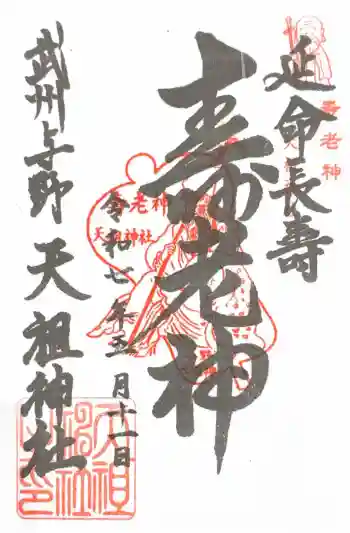 延命長壽
壽老神
寿老神
壽老神
天祖神社
令和七年五月十一日
武州与野
天祖神社